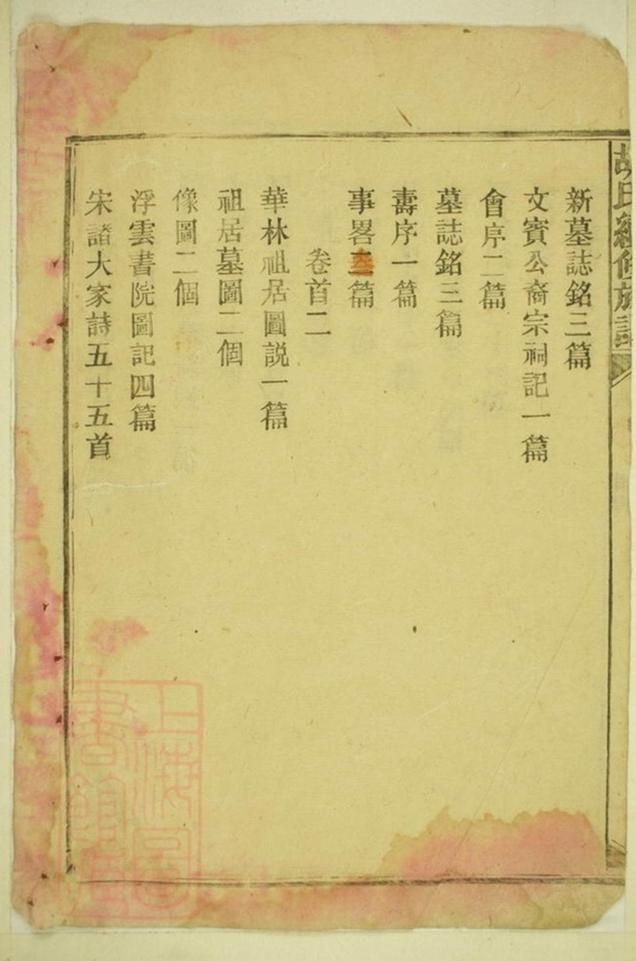 胡氏續修族譜
新墓誌銘三篇
文賓公裔宗祠記一篇
會序二篇
墓誌銘三篇
壽序一篇
事畧篇
卷首二
華林祖居圖説一篇
祖居墓圖二個
像圖二個
浮雲書院圖記四篇
宋諸大家詩五十五首
上海圖書館藏